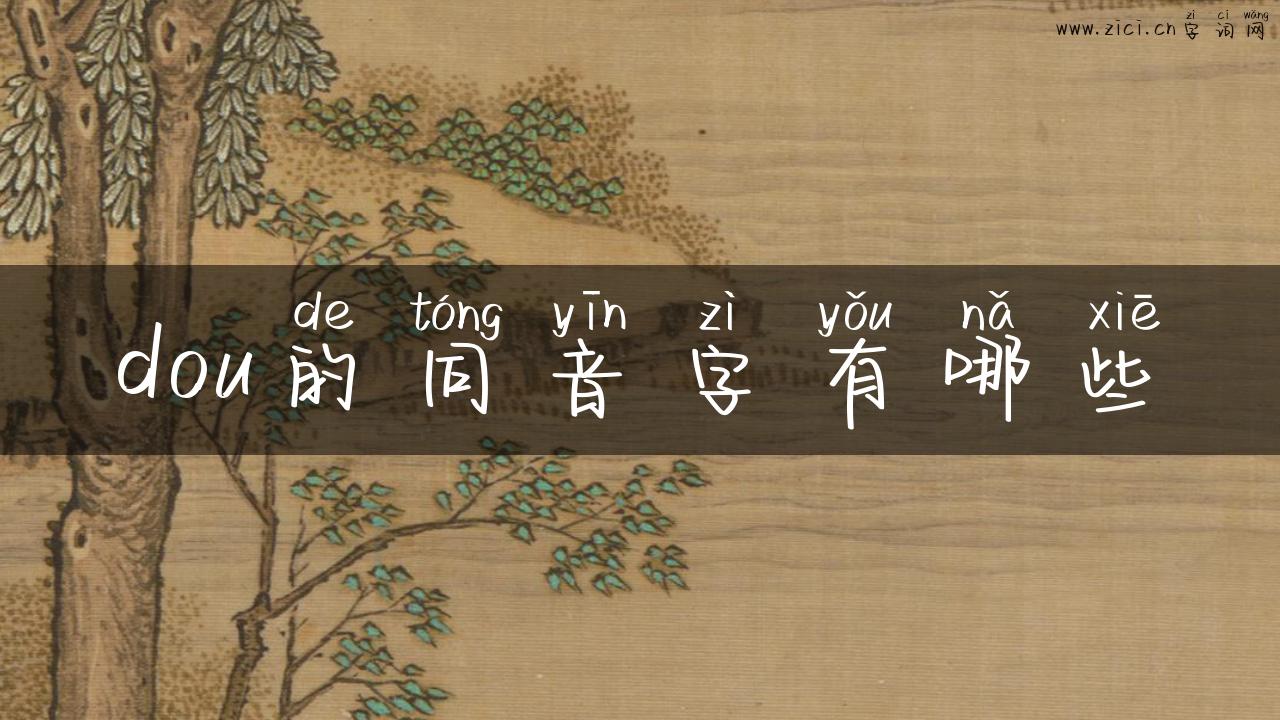 zì cí wǎng
www.zici.cn 字词网
de tóng yīn zì yǒu nǎ xiē
dou的同音字有哪些